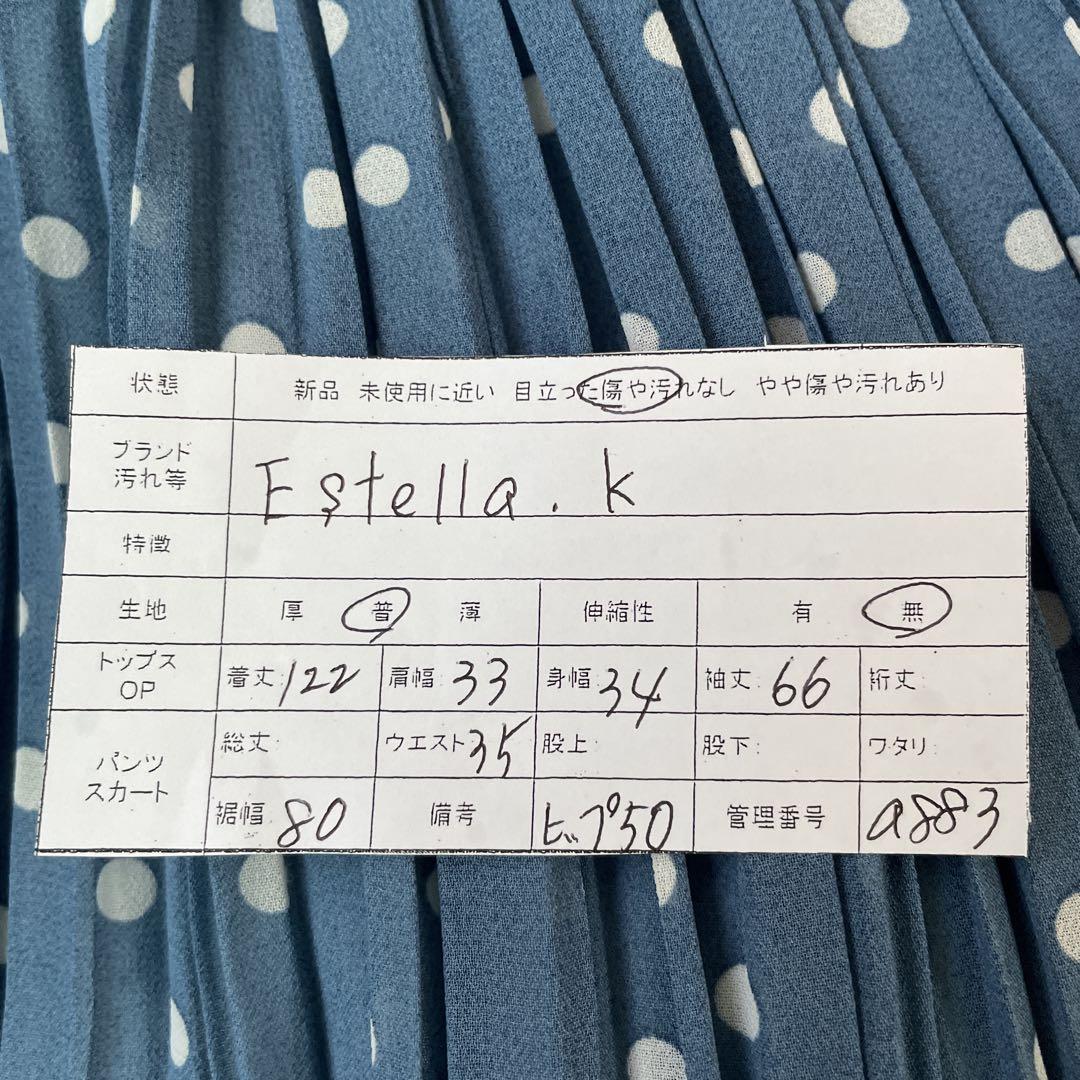 状態 新品 未使用に近い 目立った傷や汚れなし やや傷や汚れあり
ブランド
汚れ等 Estella.k
特徴
生地 厚 普 薄 伸縮性 有 無
トップス
OP 着丈:122 肩幅:33 身幅:34 袖丈:66 裄丈:
パンツ
スカート 総丈: ウエスト35 股上: 股下: ワタリ:
裾幅:80 備考 ヒップ50 管理番号 a883